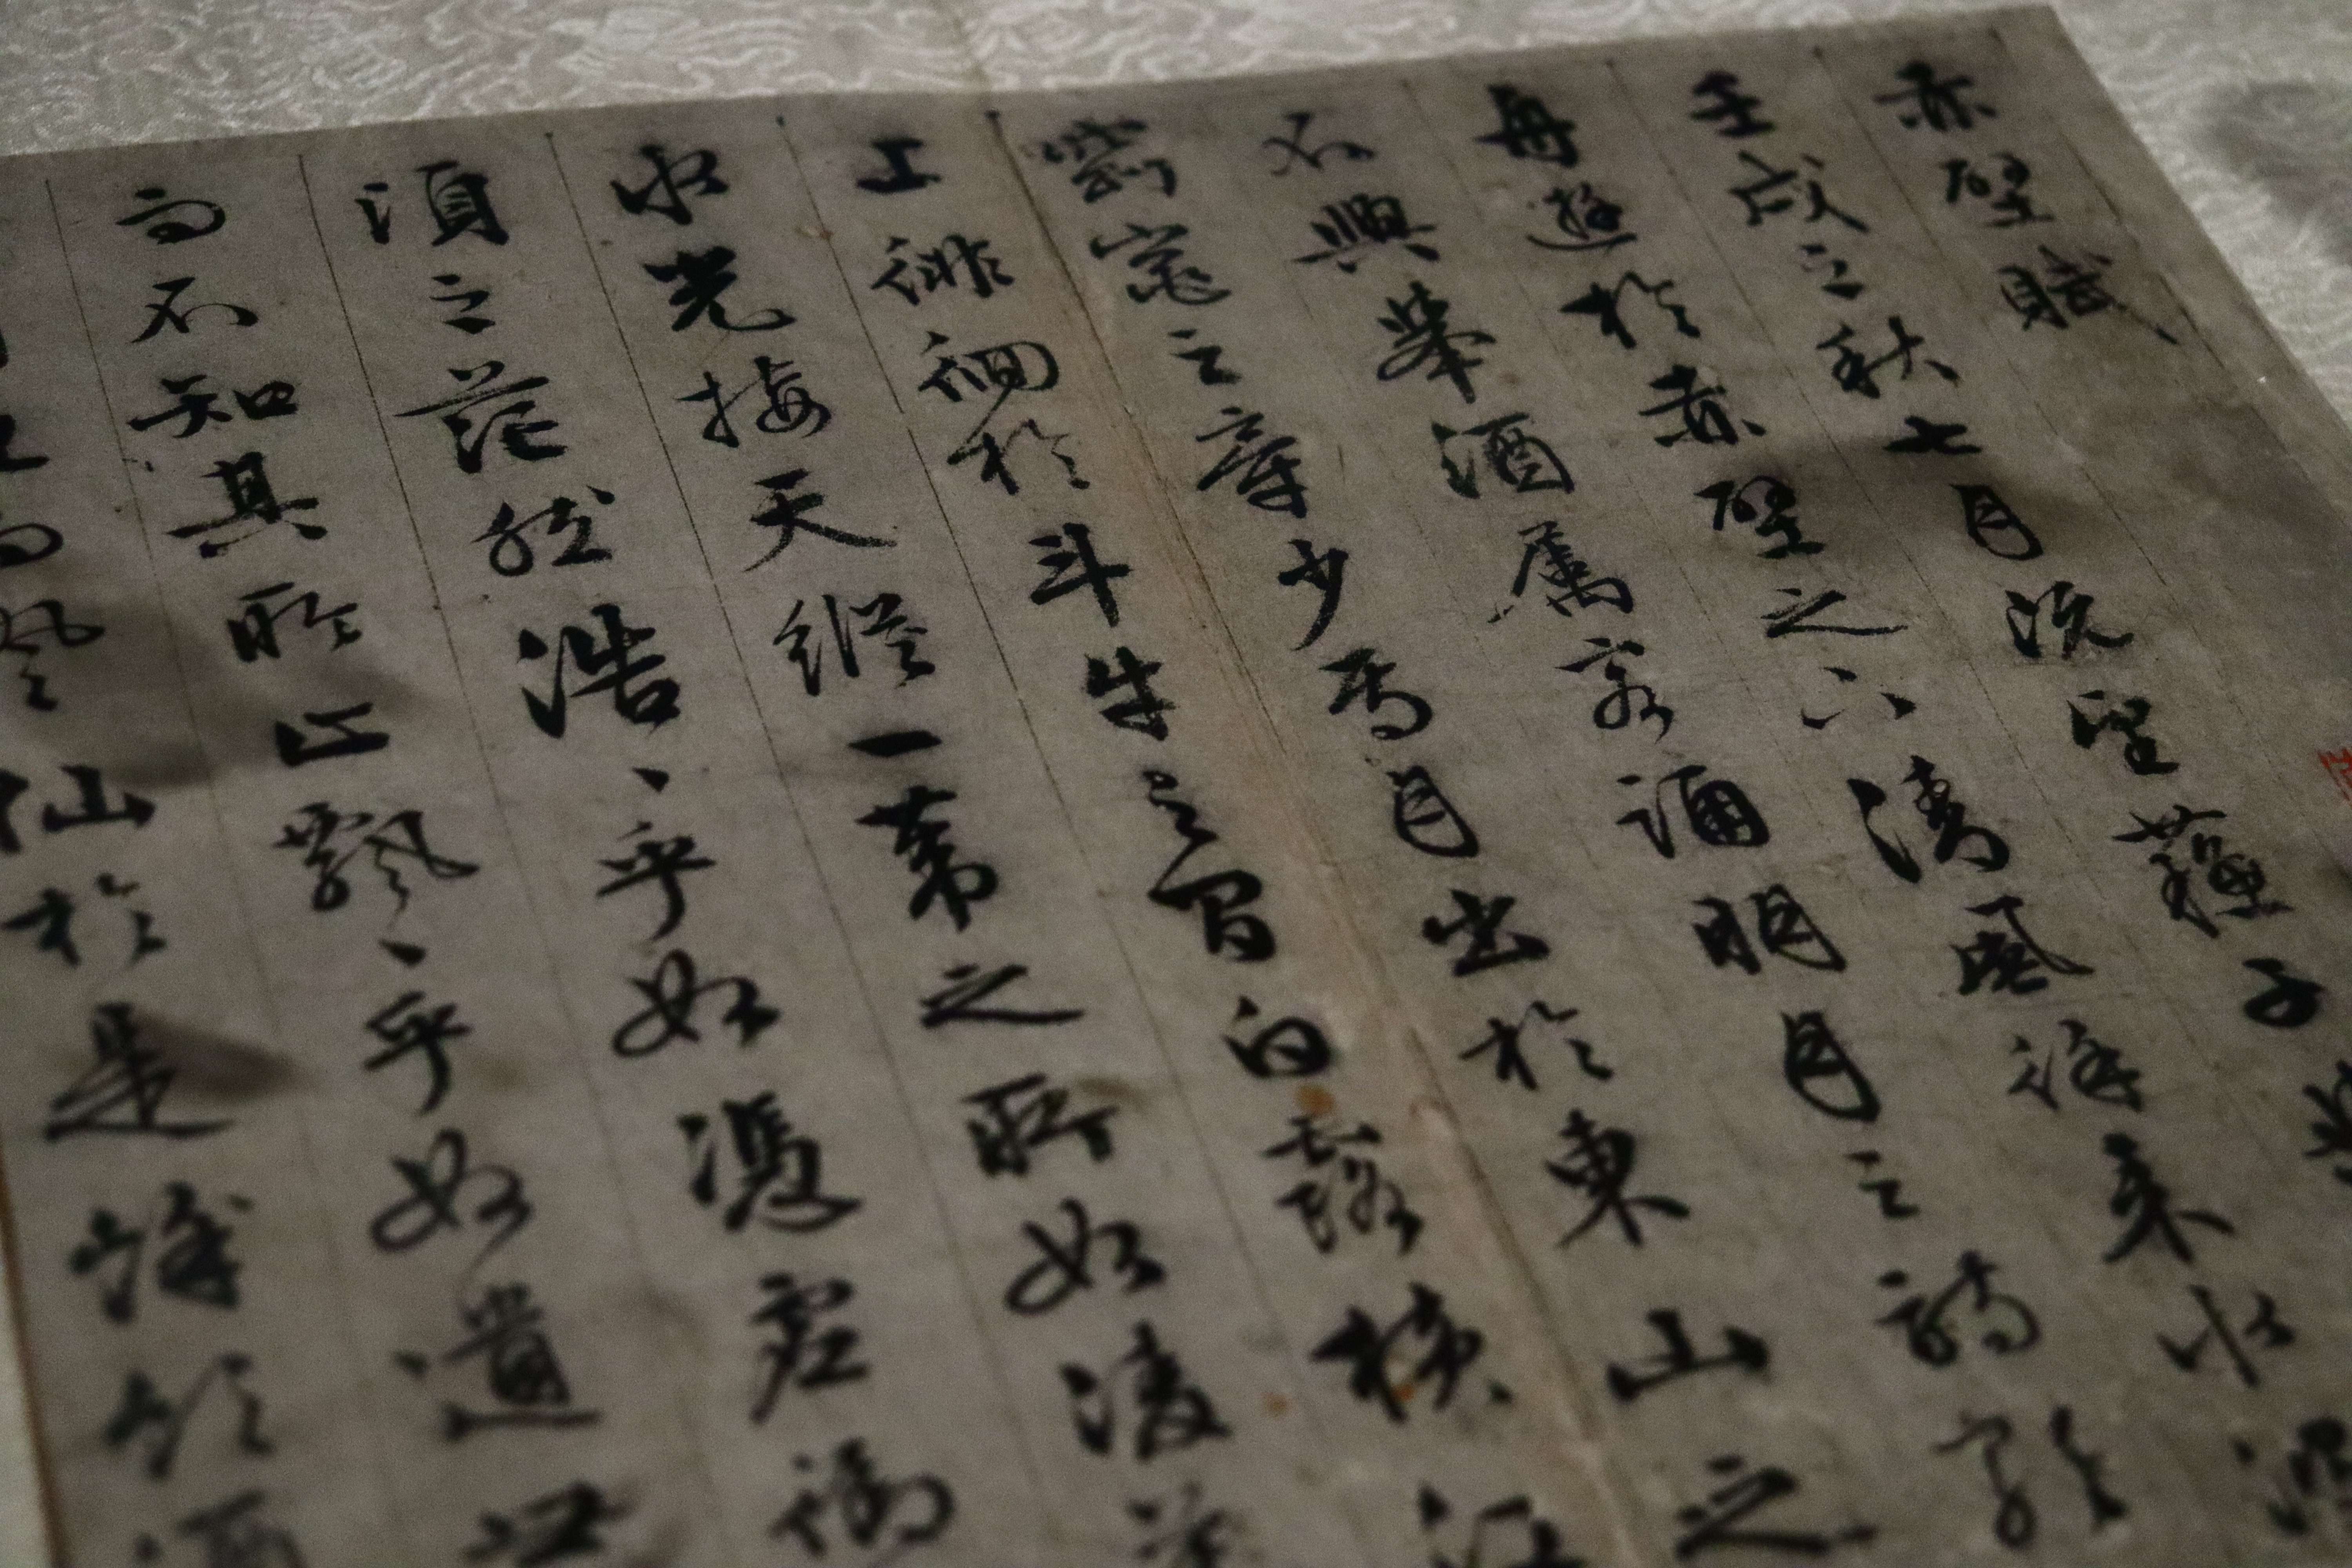 赤壁賦
壬戌之秋七月既望蘇子
舟遊於赤壁之下清風徐來水波
不興舉酒属客誦明月之詩歌
窈窕之章少焉月出於東山之
上徘徊於斗牛之間白露橫江
水光接天縱一葦之所如凌萬
頃之茫然浩、乎如馮虛御
而不知其所止飄、乎如遺世
仙於是